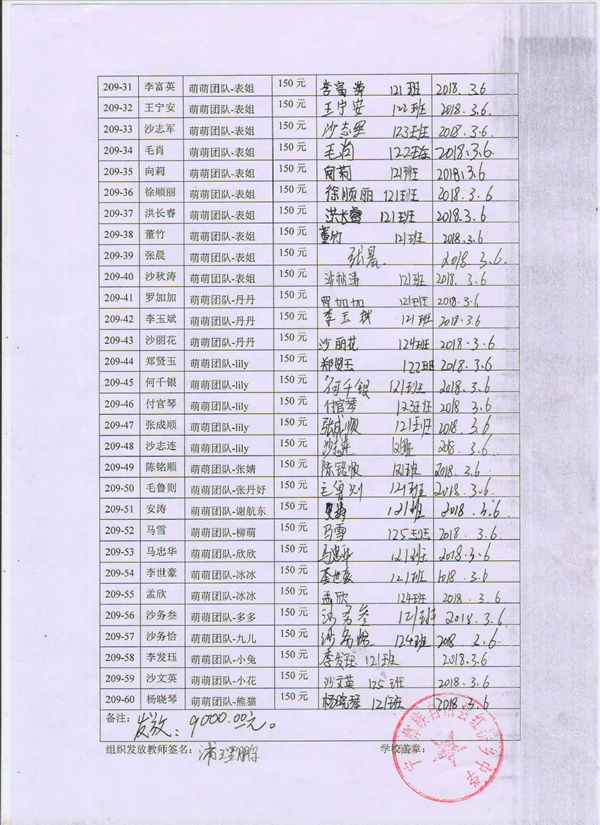 209-31 李富英 萌萌团队-表姐 150 元 李富英 121班 2018.3.6
209-32 王宁安 萌萌团队-表姐 150 元 王宁安 122班 2018.3.6
209-33 沙志军 萌萌团队-表姐 150 元 沙志军 123班 2018.3.6
209-34 毛肖 萌萌团队-表姐 150 元 毛肖 122班 2018.3.6
209-35 向莉 萌萌团队-表姐 150 元 向莉 121班 2018.3.6
209-36 徐顺丽 萌萌团队-表姐 150 元 徐顺丽 121班 2018.3.6
209-37 洪长睿 萌萌团队-表姐 150 元 洪长睿 121班 2018.3.6
209-38 董竹 萌萌团队-表姐 150 元 董竹 121班 2018.3.6
209-39 张晨 萌萌团队-表姐 150 元 张晨 2018.3.6.
209-40 沙秋涛 萌萌团队-表姐 150 元 沙秋涛 121班 2018.3.6
209-41 罗加加 萌萌团队-丹丹 150 元 罗加加 121班 2018.3.6
209-42 李玉斌 萌萌团队-丹丹 150 元 李玉斌 121班 2018.3.6
209-43 沙丽花 萌萌团队-丹丹 150 元 沙丽花 124班 2018.3.6
209-44 郑贤玉 萌萌团队-lily 150 元 郑贤玉 122班 2018.3.6
209-45 何千银 萌萌团队-lily 150 元 何千银 121班 2018.3.6
209-46 付官琴 萌萌团队-lily 150 元 付官琴 123班 2018 3.6
209-47 张成顺 萌萌团队-lily 150 元 张成顺 121班 2018.3.6
209-48 沙志连 萌萌团队-lily 150 元 121班 3.6
209-49 陈铭顺 萌萌团队-张婧 150 元 陈铭顺 121班 2018.3.6
209-50 毛鲁则 萌萌团队-张丹好 150 元 毛鲁则 121班 2018.3.6
209-51 安涛 萌萌团队-谢航东 150 元 121班 2018.3.6
209-52 马雪 萌萌团队-柳萌 150 元 马雪 125班 2018.3.6
209-53 马忠华 萌萌团队-欣欣 150 元 马忠华 121班 2018.3.6
209-54 李世豪 萌萌团队-冰冰 150 元 李世豪 121班 2018.3.6
209-55 孟欣 萌萌团队-冰冰 150 元 孟欣 124班 2018.3.6
209-56 沙务叁 萌萌团队-多多 150 元 沙务叁 121班 2018.3.6
209-57 沙务恰 萌萌团队-九儿 150 元 沙务恰 124班 2018 3.6
209-58 李发珏 萌萌团队-小兔 150 元 李发珏 121班 2018.3.6
209-59 沙文英 萌萌团队-小花 150 元 沙文英 125班 2018.3.6
209-60 杨晓琴 萌萌团队-熊猫 150 元 杨晓琴 121班 2018.3.6
备注: 发放:9000.00元。
组织发放教师签名: 学校盖章: